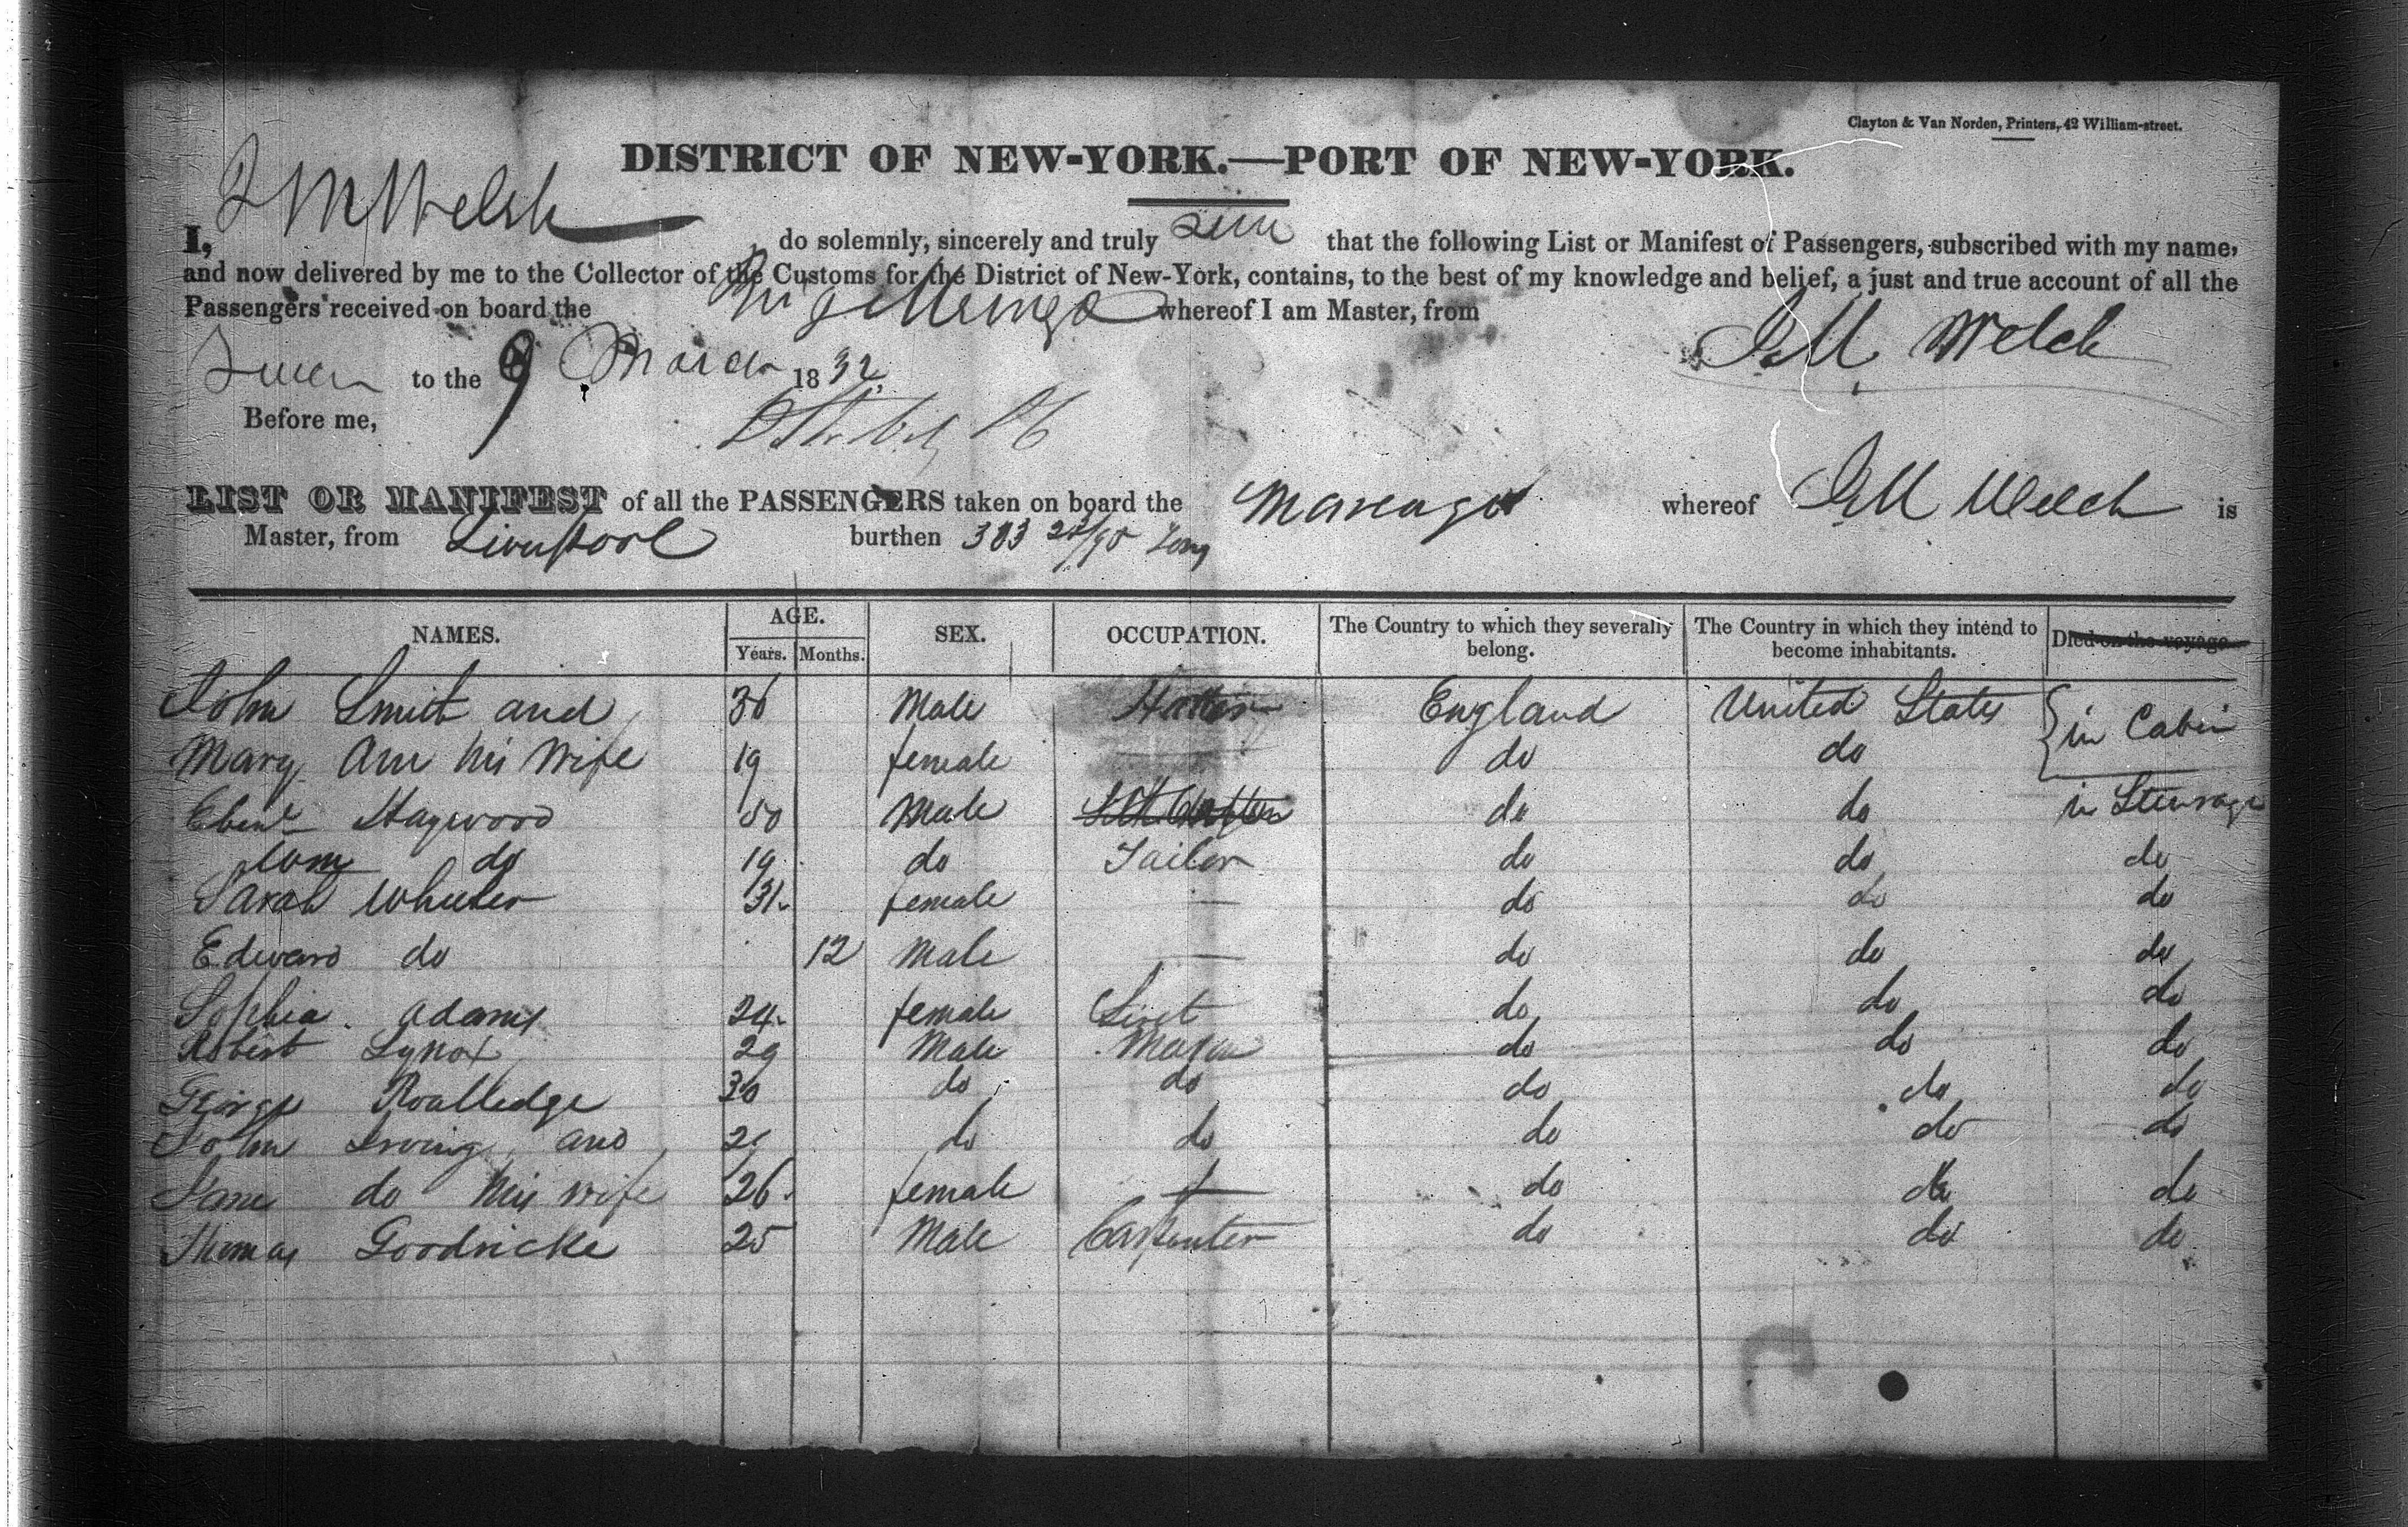 Clayton & Van Norden, Printers, 42 William-street.
DISTRICT OF NEW-YORK.—PORT OF NEW-YORK.
I, J M Welsh do solemnly, sincerely and truly that the following List or Manifest of Passengers, subscribed with my name,
and now delivered by me to the Collector of the Customs for the District of New-York, contains, to the best of my knowledge and belief, a just and true account of all the
Passengers received on board the whereof I am Master, from
to the 9 March 1832, J M Welch
Before me,
LIST OR MANIFEST of all the PASSENGERS taken on board the Marengo whereof J M Welch is
Master, from Liverpool burthen 303 Tons
NAMES. AGE. Years. Months. SEX. OCCUPATION. The Country to which they severally belong. The Country in which they intend to become inhabitants. Died on the voyage
John Smith and 36 Male England United States in Cabin
Mary Ann his Wife 19 female do do
Ebenr Haywood 50 Male do do in Steerage
do 19 do Tailor do do do
Sarah Wheeler 31 female — do do do
Edward do 12 Male — do do do
Sophia Adams 24 female do do do
Robert Lynox 29 Male do do do
George Roalledge 30 do do do do do
John Irving and do do do do do
Jane do his wife 26 female do do do
Thomas Goodricke 25 Male Carpenter do do do